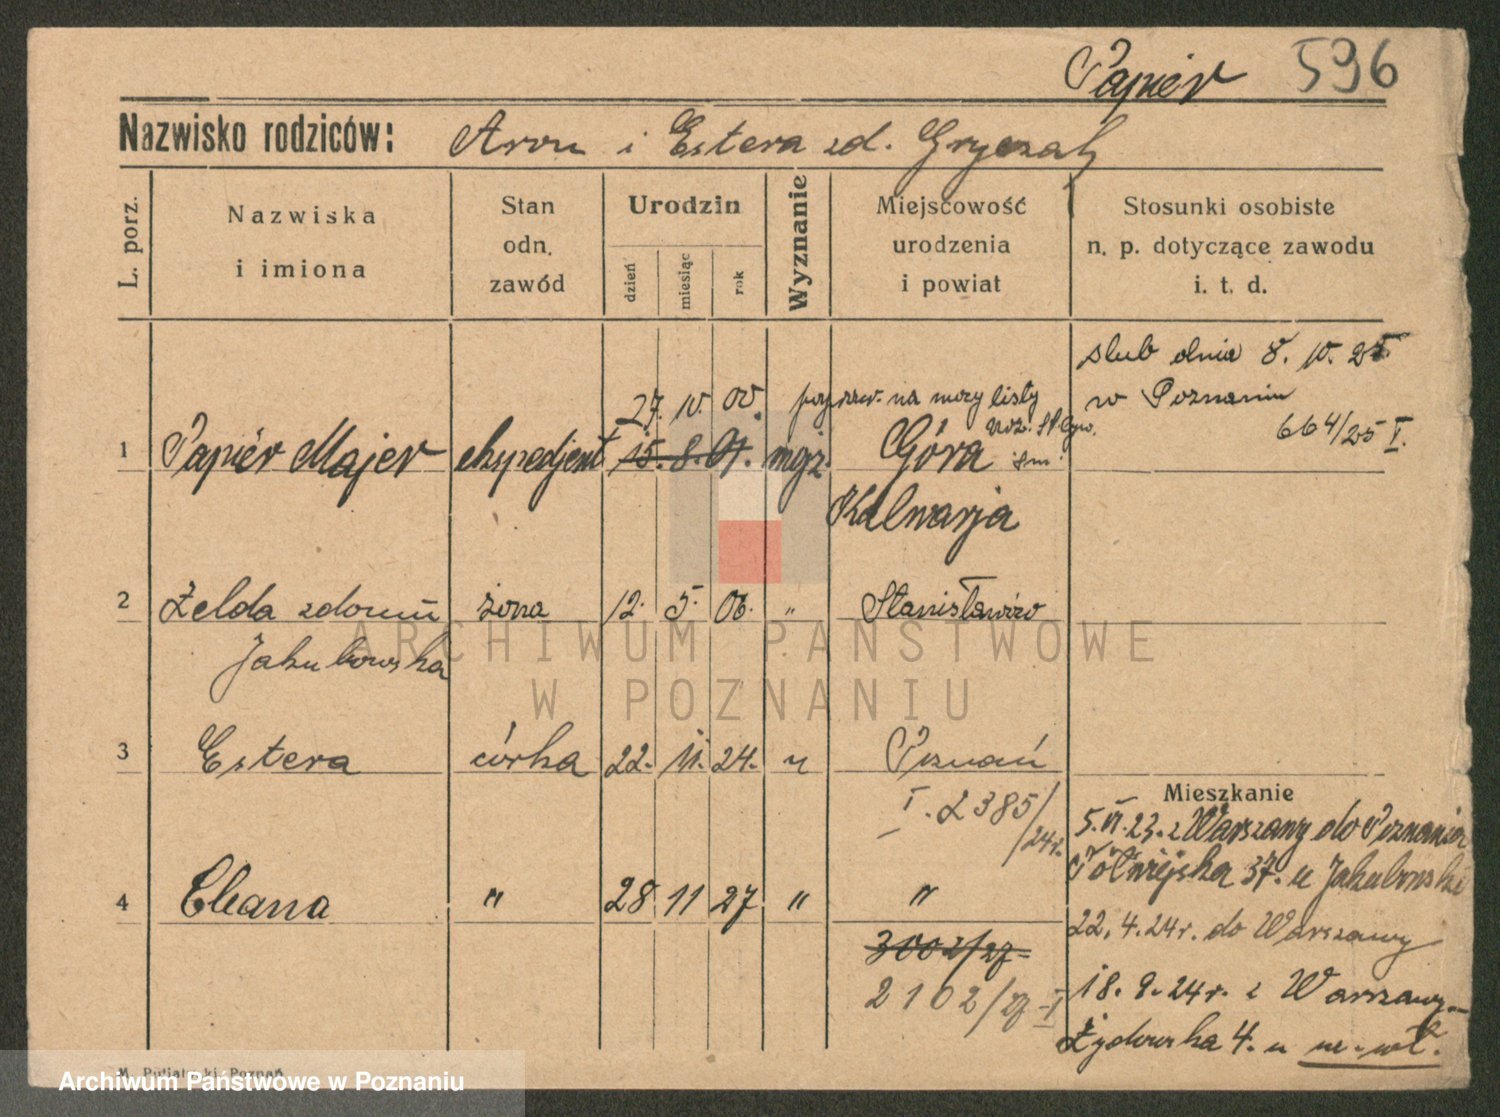 Papier 596
Nazwisko rodziców: Aron i Estera zd. Gryczak
L. porz.
Nazwiska
i imiona
Stan
odn.
zawód
Urodzin
dzień
miesiąc
rok
Wyznanie
Miejscowość
urodzenia
i powiat
Stosunki osobiste
n. p. dotyczące zawodu
i. t. d.
ślub dnia 8. 10. 25
w Poznaniu
664/25 I.
27. 10. 00. na mocy listy
1 Papier Majer ekspedjent 15. 8. 01. mojż. Góra
Kalwarja
2 Zelda zdomu żona 12. 5. 06. " Stanisławów
Jakubowska
3 Estera córka 22. 11. 24. " Poznań
I. 2385/24r.
4 Chana " 28 11 27 " "
3002/27
2102/27 I
Mieszkanie
5.VI.23. z Warszawy do Poznania
37. u Jakubowski
22. 4. 24r. do Warszawy
18. 9. 24r. z Warszawy
Żydowska 4. u
M. Putiatycki, Poznań
ARCHIWUM PAŃSTWOWE
W POZNANIU
Archiwum Państwowe w Poznaniu